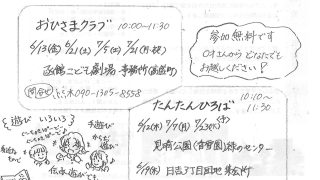 おひさまクラブ 10:00～11:30
6/13(金) 6/21(土) 7/5(土) 7/21(月・祝)
函館こども劇場 事務所
問合せ 090-1305-8558
参加無料です
0才さんから どなたでも
お越しください！
たんたんひろば 10:10～11:30
6/2(木) 7/7(月) 7/23(水)
見晴公園(香雪園)緑のセンター
6/19(木) 日吉3丁目団地集会所
遊び いろいろ
手遊び
からだ遊び
伝承遊び